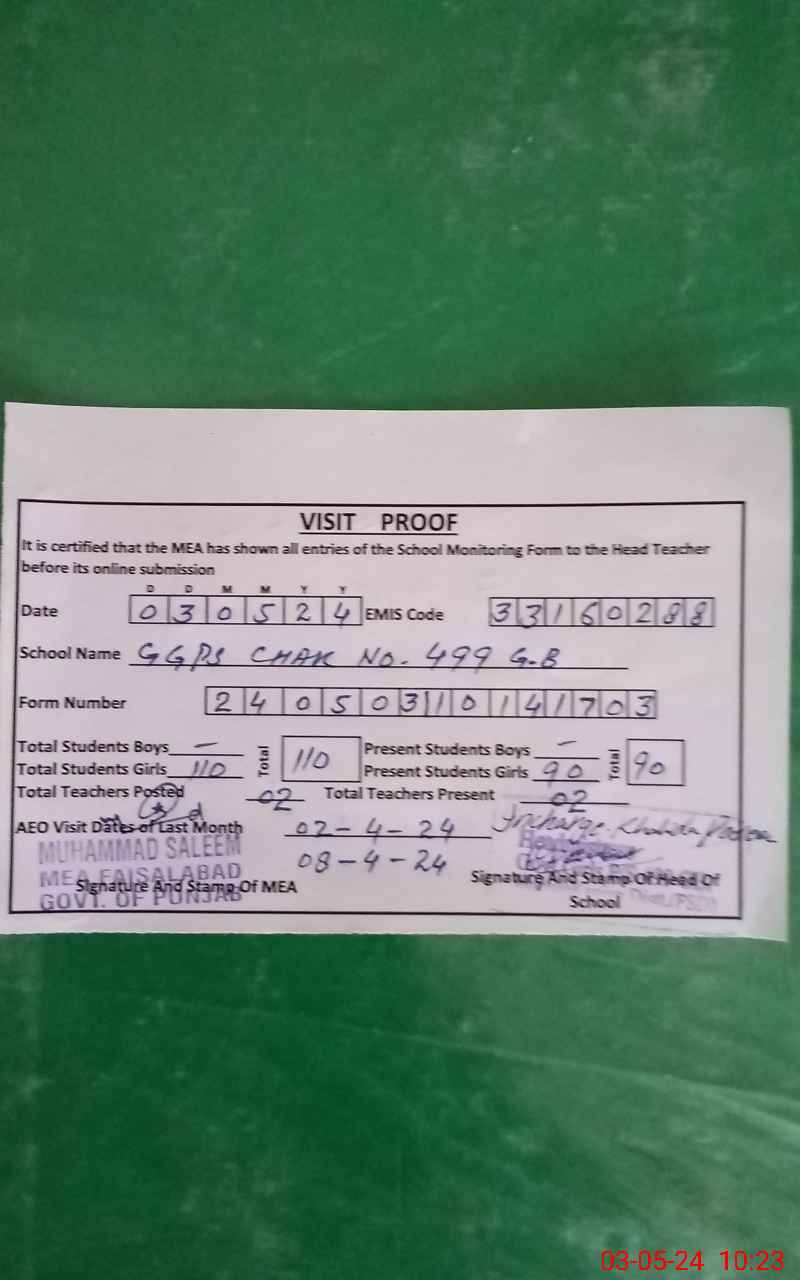 VISIT PROOF
It is certified that the MEA has shown all entries of the School Monitoring Form to the Head Teacher
before its online submission
D D M M Y Y
Date 0 3 0 5 2 4 EMIS Code 3 3 1 6 0 2 8 8
School Name GGPS CHAK No. 499 G.B
Form Number 2 4 0 5 0 3 1 0 1 4 1 7 0 3
Total Students Boys — Total 110 Present Students Boys — Total 90
Total Students Girls 110 Present Students Girls 90
Total Teachers Posted 02 Total Teachers Present 02
AEO Visit Dates of Last Month 02-4-24 Incharge
08-4-24
MUHAMMAD SALEEM
MEA FAISALABAD
GOVT. OF PUNJAB
Signature And Stamp Of MEA Signature And Stamp Of Head Of
School
03-05-24 10:23